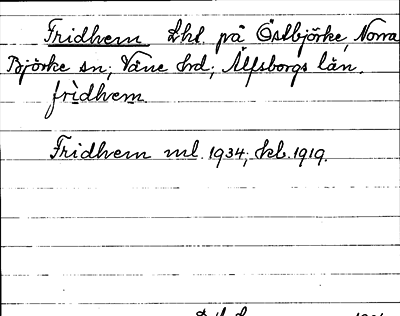 Fridhem Lht på Östbjörke, Norra
Björke sn; Väne hd; Älfsborgs län.
fridhem.
Fridhem ml. 1934, kb. 1919.